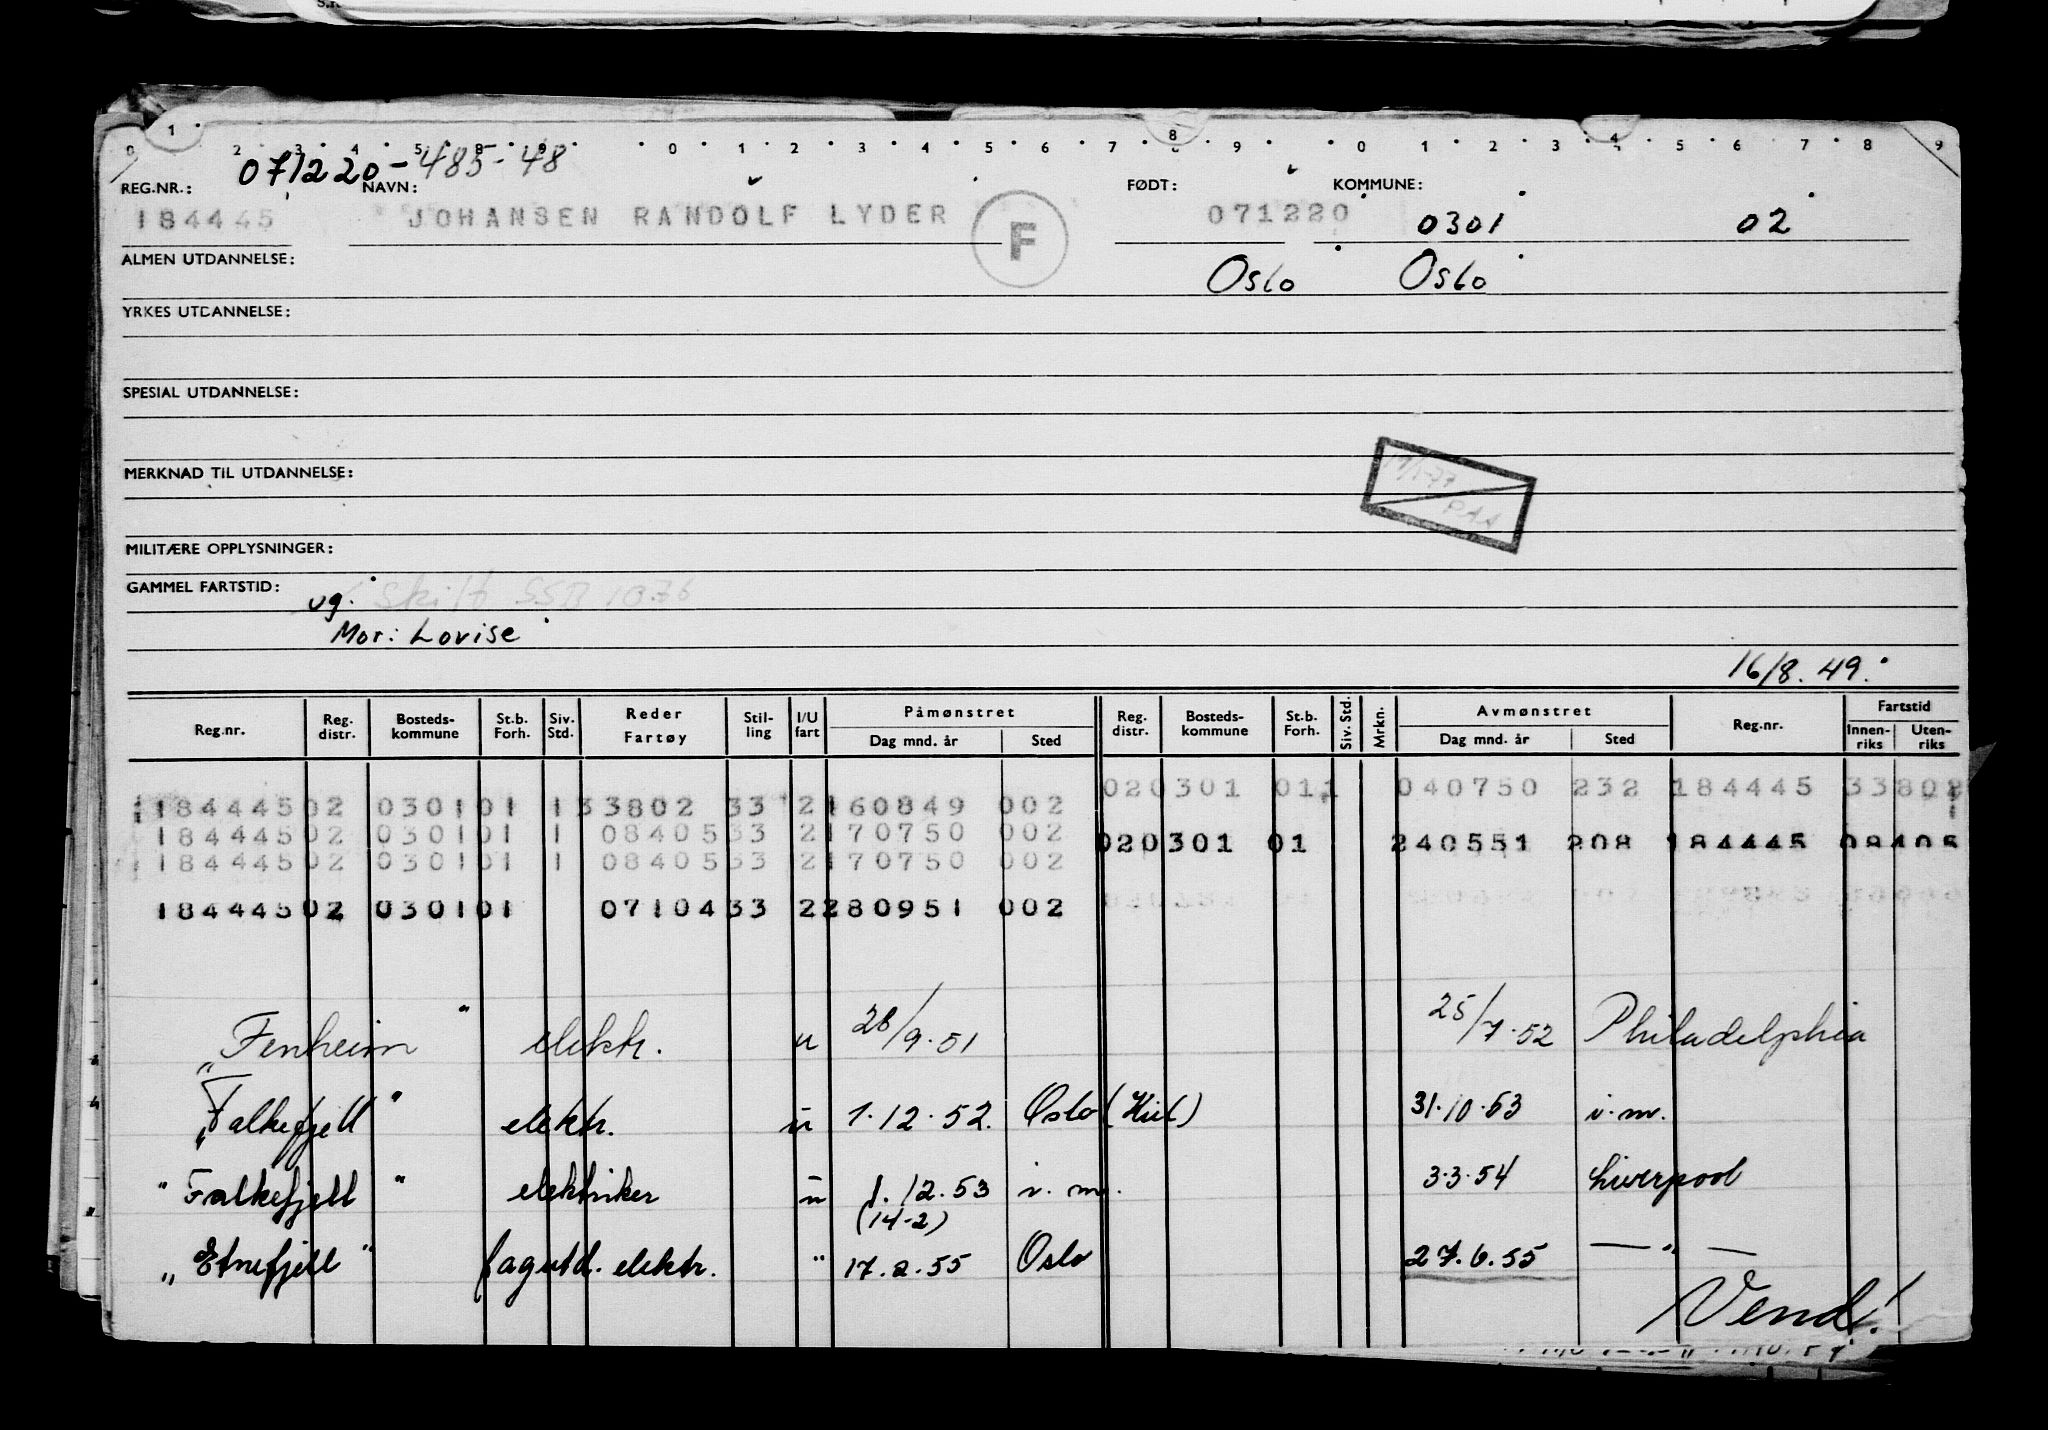 1 8
2 3 4 5 8 9 0 1 2 3 4 5 6 7 8 9 0 1 2 3 4 5 6 7 8 9
071220-485-48
REG.NR.: NAVN: FØDT: KOMMUNE:
184445 JOHANSEN RANDOLF LYDER F 071220 0301 02
ALMEN UTDANNELSE: Oslo Oslo
YRKES UTDANNELSE:
SPESIAL UTDANNELSE:
MERKNAD TIL UTDANNELSE:
MILITÆRE OPPLYSNINGER:
GAMMEL FARTSTID: ug. Skift SSB 1076
Mor: Lovise
16/8.49.
Reg.nr. Reg. distr. Bosteds-kommune St.b. Forh. Siv. Std. Reder Fartøy Stil-ling I/U fart Påmønstret Dag mnd. år Sted Reg. distr. Bosteds-kommune St.b. Forh. Siv. Std. Mrkn. Avmønstret Dag mnd. år Sted Reg.nr. Fartstid Innen-riks Uten-riks
020301 011 040750 232 184445 33802
184445 02 0301 01 1 33802 33 2 160849 002
184445 02 0301 01 1 08405 33 2 170750 002
020301 01 240551 208 184445 08405
184445 02 0301 01 1 08405 33 2 170750 002
184445 02 0301 01 07104 33 2 280951 002
"Fenheim" elektr. u 28/9.51 25/7.52 Philadelphia
"Falkefjell" elektr. u 1.12.52. Oslo (Kiel) 31.10.53 i.m.
"Falkefjell" elektriker u 1.12.53 i.m. 3.3.54 Liverpool
(14-2)
"Etnefjell" fagutd. elektr. " 17.2.55 Oslo 27.6.55 — " —
Vend!